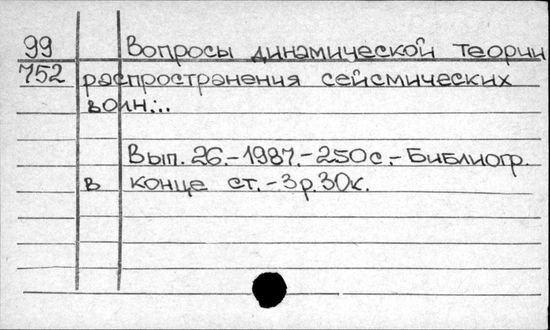 99 Вопросы динамической теории
752 распространения сейсмических
волн...
Вып. 26.-1987.-250с.-Библиогр.
в конце ст.-3р.30к.